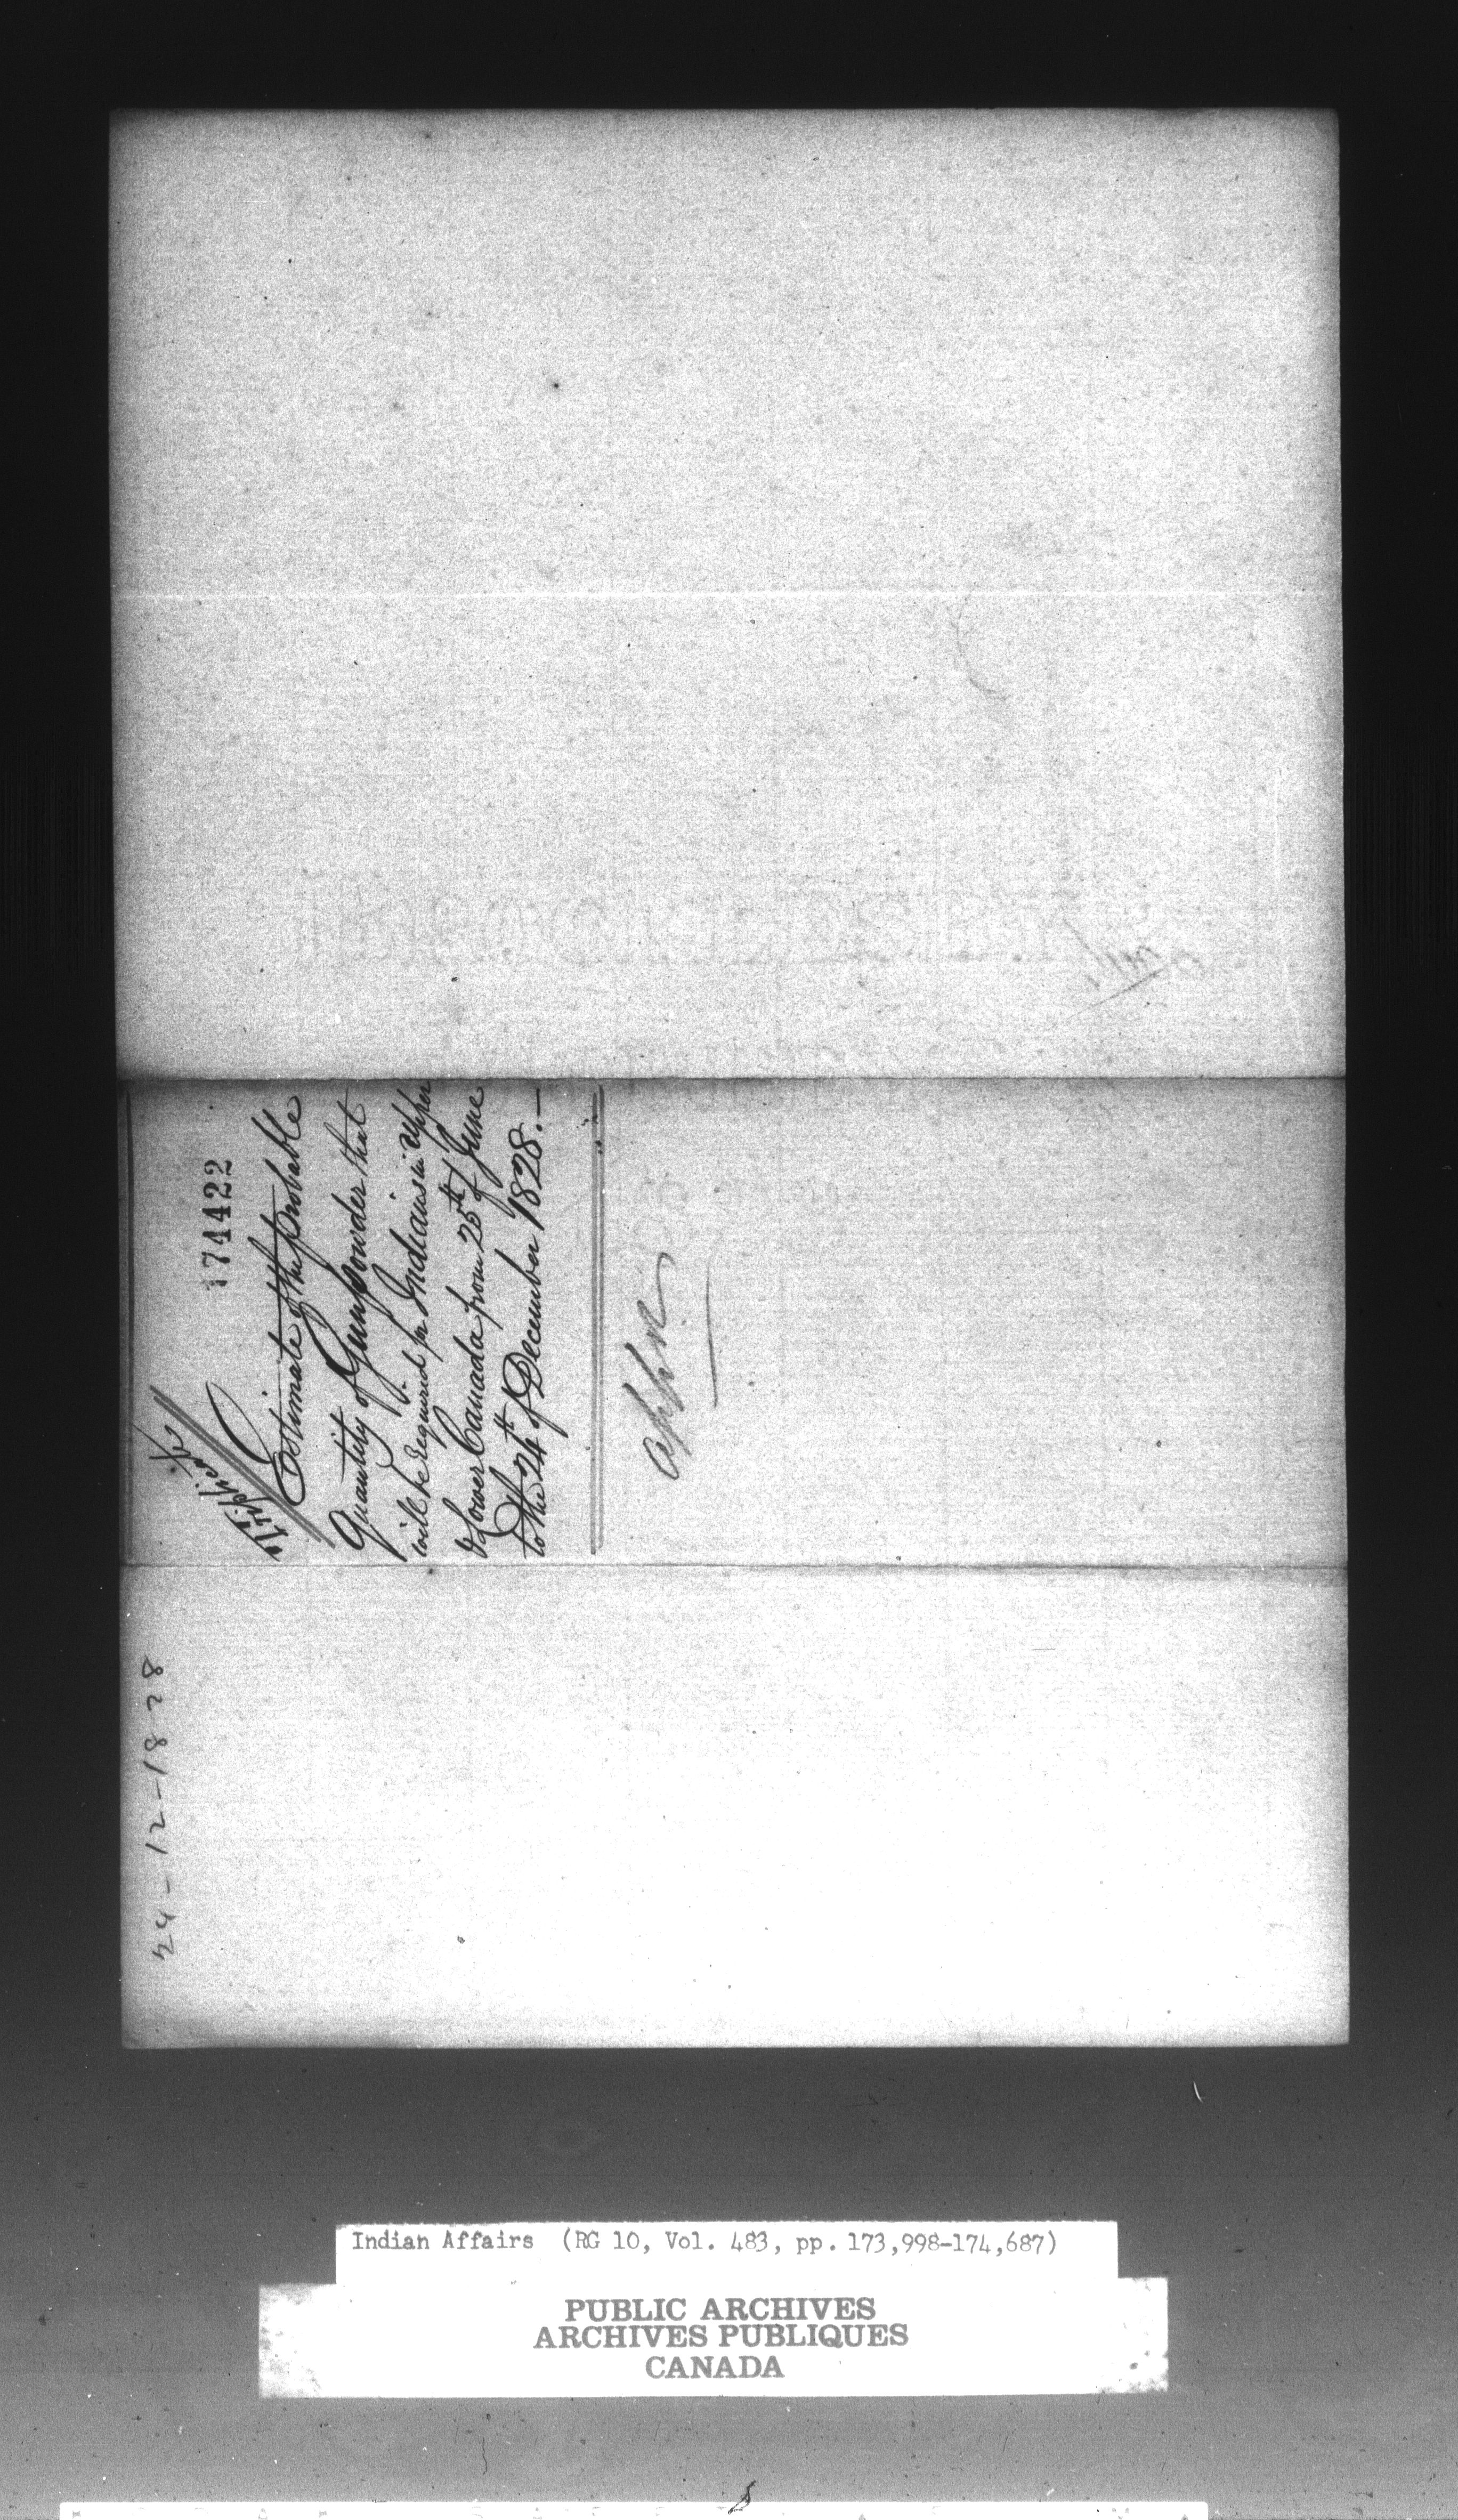 174422
Triplicate
Estimate of the probable
Quantity of Gunpowder that
will be required for Indians in Upper
& Lower Canada from 25th of June
to the 24th of December 1828.—
24-12-1828
Indian Affairs (RG 10, Vol. 483, pp. 173,998-174,687)
PUBLIC ARCHIVES
ARCHIVES PUBLIQUES
CANADA